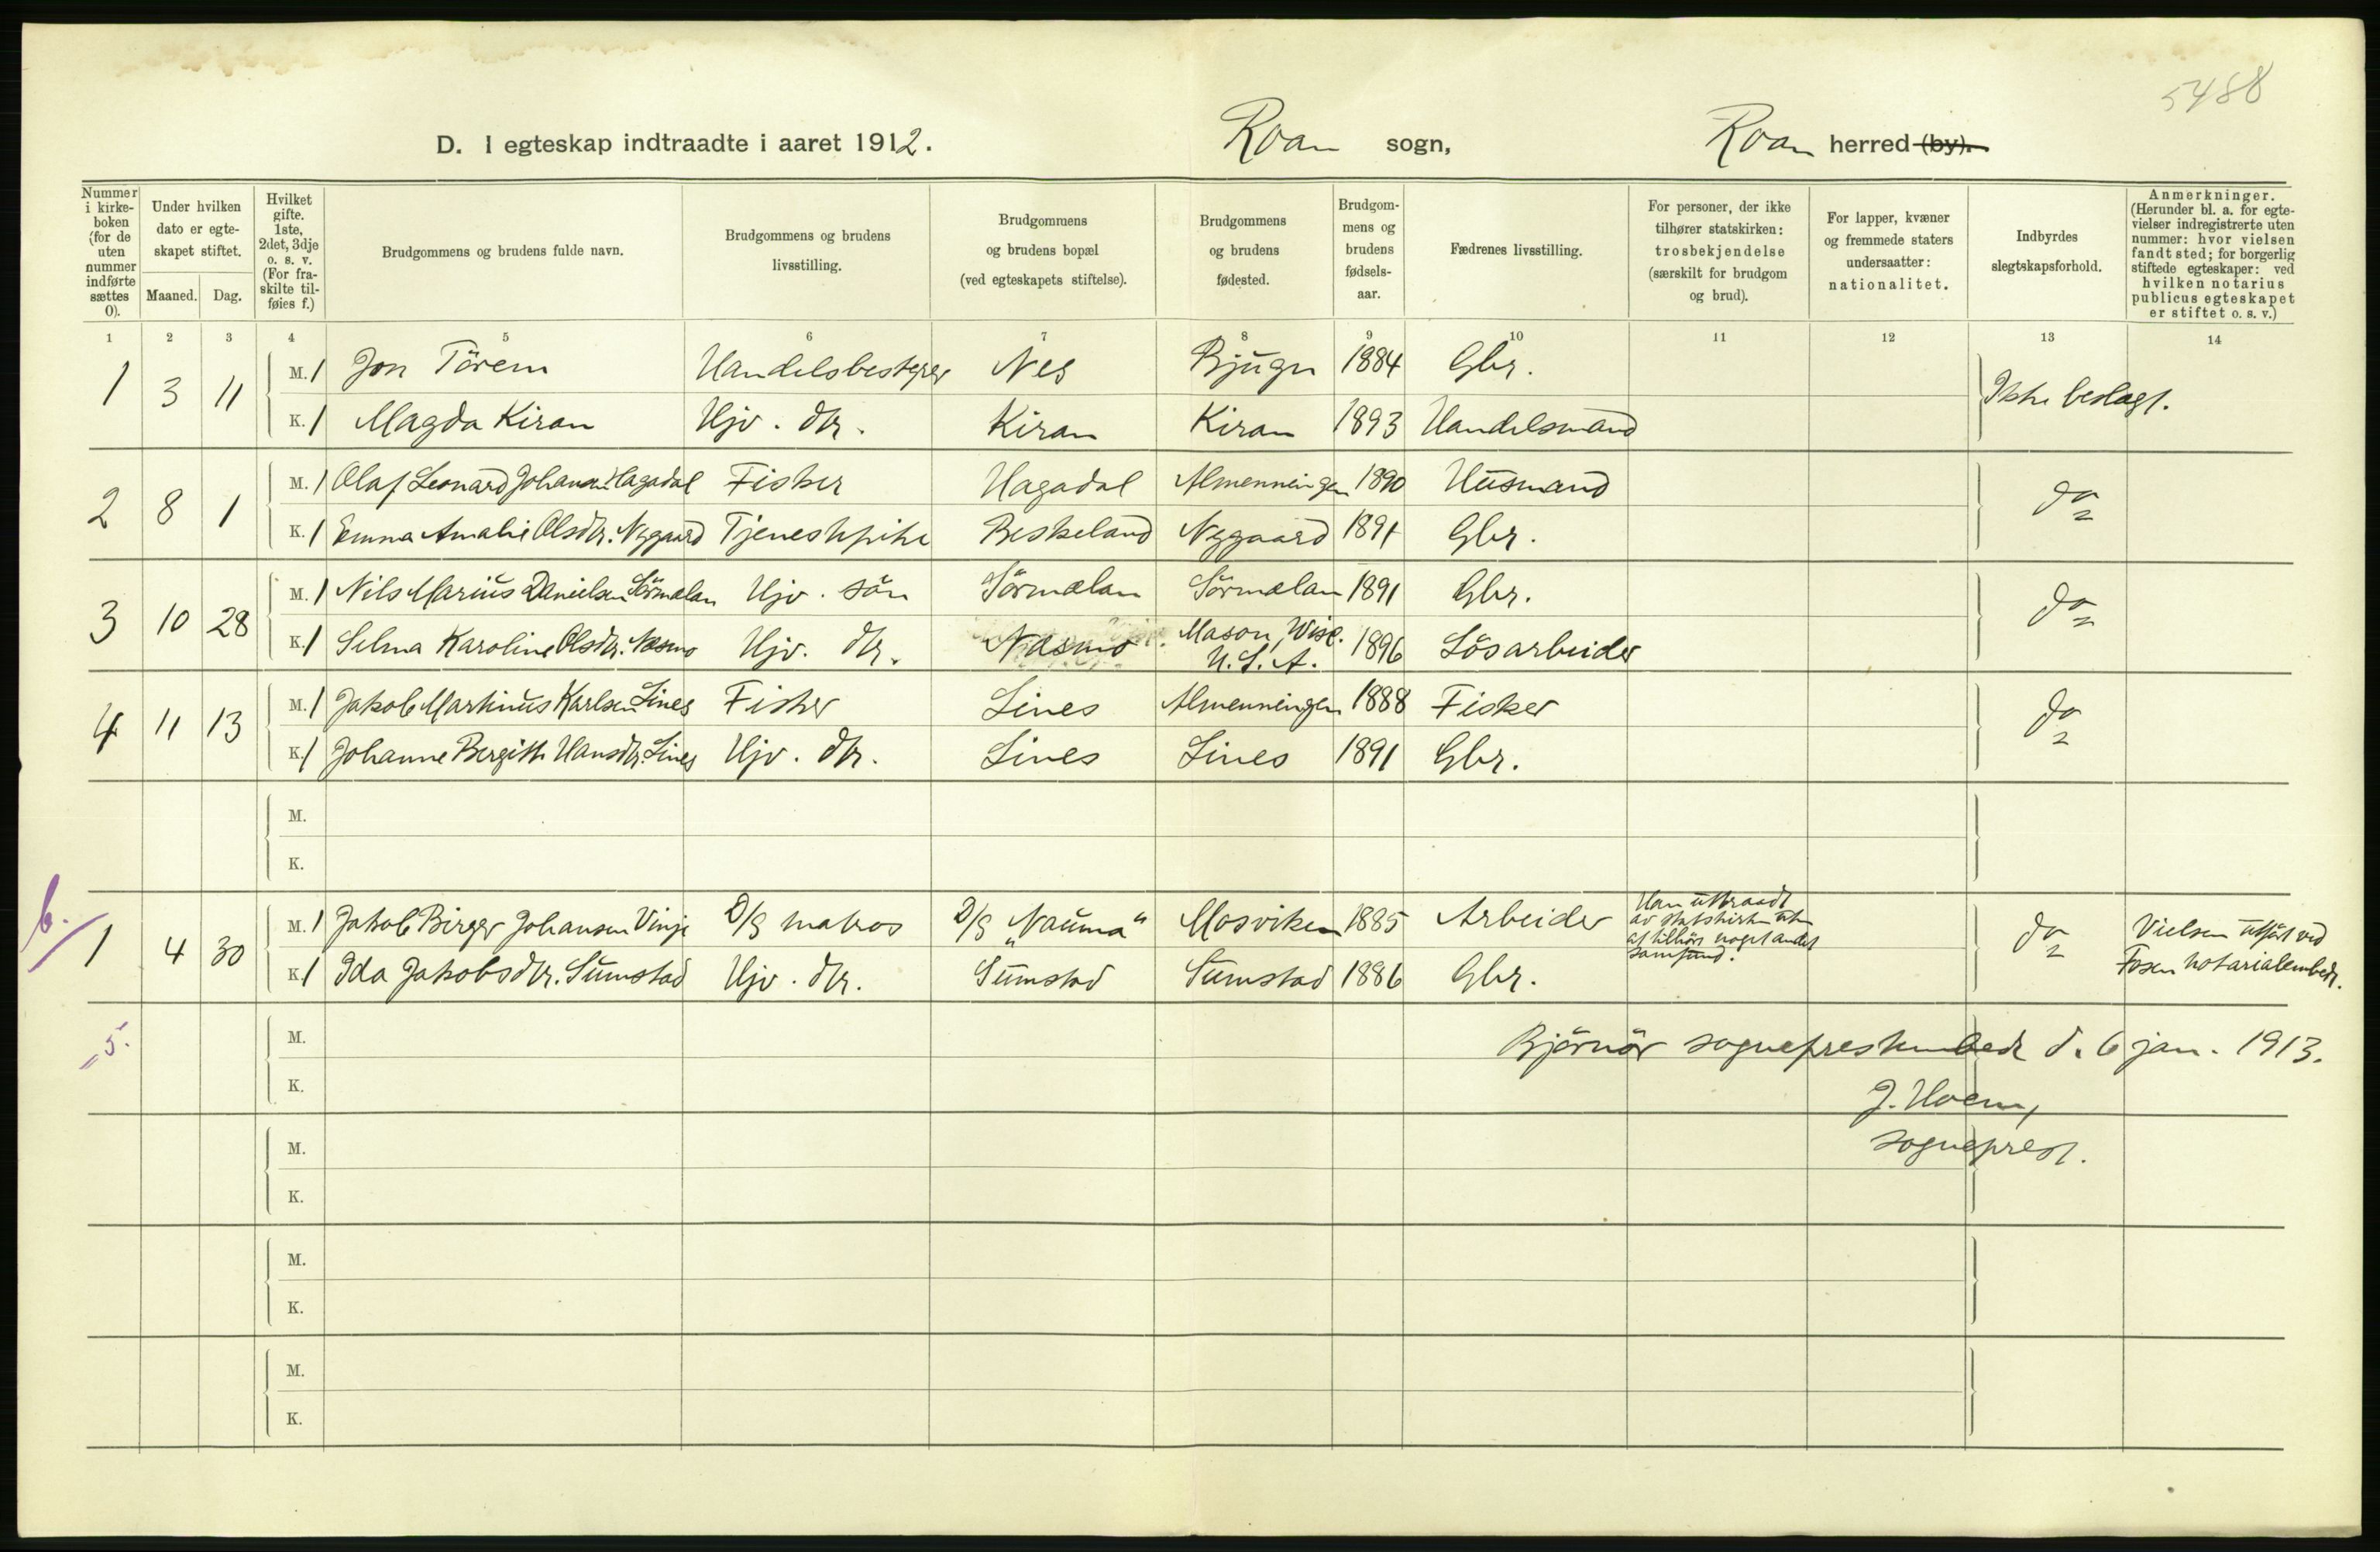 5488
D. I egteskap indtraadte i aaret 1912. Roan sogn, Roan herred (by).
Nummer i kirke-boken (for de uten nummer indførte sættes 0).
Under hvilken dato er egte-skapet stiftet.
Maaned. Dag.
Hvilket gifte. 1ste, 2det, 3dje o. s. v. (For fra-skilte til-føies f.)
Brudgommens og brudens fulde navn.
Brudgommens og brudens livsstilling.
Brudgommens og brudens bopæl (ved egteskapets stiftelse).
Brudgommens og brudens fødested.
Brudgom-mens og brudens fødsels-aar.
Fædrenes livsstilling.
For personer, der ikke tilhører statskirken: trosbekjendelse (særskilt for brudgom og brud).
For lapper, kvæner og fremmede staters undersaatter: nationalitet.
Indbyrdes slegtskapsforhold.
Anmerkninger. (Herunder bl. a. for egte-vielser indregistrerte uten nummer: hvor vielsen fandt sted; for borgerlig stiftede egteskaper: ved hvilken notarius publicus egteskapet er stiftet o. s. v.)
1 2 3 4 5 6 7 8 9 10 11 12 13 14
1 3 11 M. 1 Jon Tårem Handelsbestyrer Nes Bjugn 1884 Gbr. Ikke beslegt.
K. 1 Magda Kiran Hjv. dtr. Kiran Kiran 1893 Handelsmand
2 8 1 M. 1 Olaf Leonard Johansen Hagadal Fisker Hagadal Almenningen 1890 Husmand do
K. 1 Emma Amalie Olsdtr. Nygaard Tjenestepike Beskeland Nygaard 1891 Gbr.
3 10 28 M. 1 Nils Marius Danielsen Sörmælan Hjv. sön Sörmælan Sörmælan 1891 Gbr. do
K. 1 Selma Karoline Olsdtr. Næsmo Hjv. dtr. Næsmo Mason, Wisc. U. S. A. 1896 Lösarbeider
4 11 13 M. 1 Jakob Martinus Karlsen Lines Fisker Lines Almenningen 1888 Fisker do
K. 1 Johanne Bergitte Hansdtr. Lines Hjv. dtr. Lines Lines 1891 Gbr.
M.
K.
b.
1 4 30 M. 1 Jakob Birger Johansen Vinje D/S matros D/S „Nauma" Mosviken 1885 Arbeider Han uttraadt av statskirken uten at tilhöre noget andet samfund. do Vielsen utfört ved Fosen notarialembede.
K. 1 Ida Jakobsdtr. Sumstad Hjv. dtr. Sumstad Sumstad 1886 Gbr.
5.
M. Björnör sogneprestembede d. 6 jan. 1913.
K. J. Hoem,
M. sogneprest.
K.
M.
K.
M.
K.